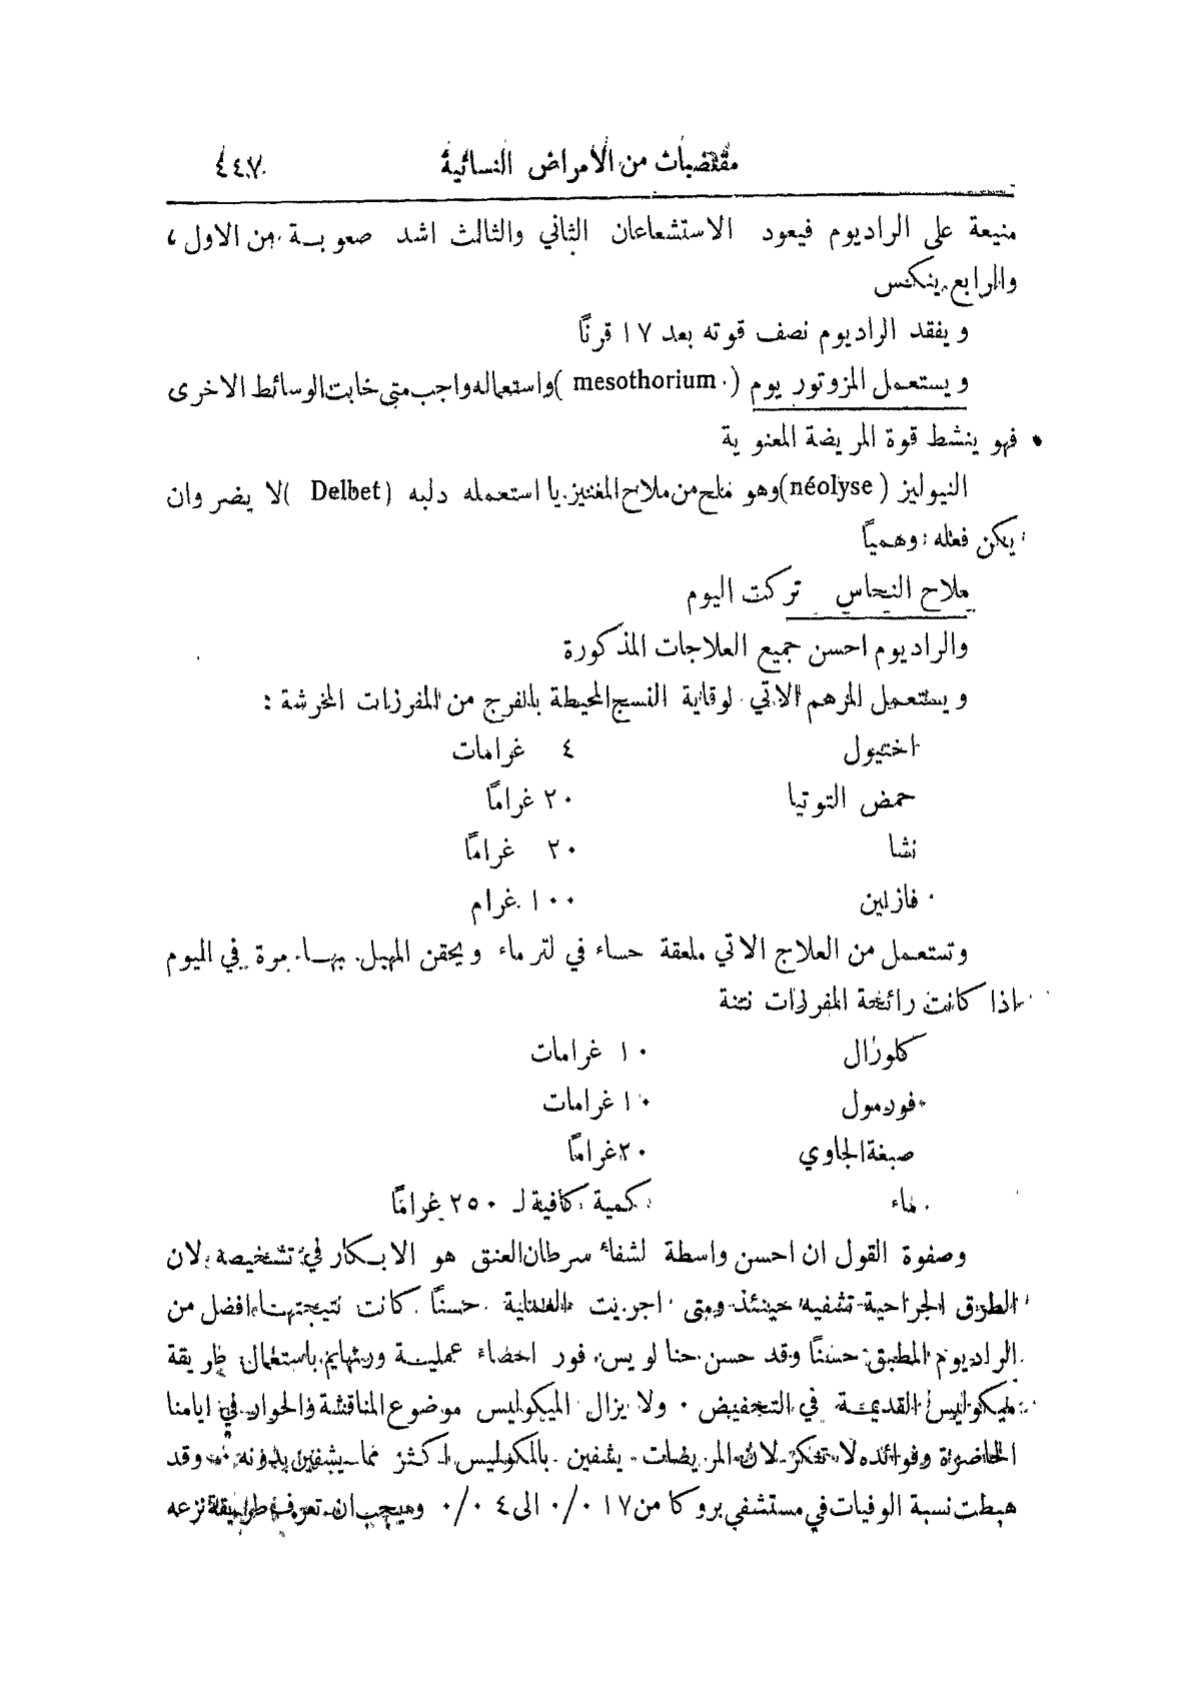 مقتضبات من الأمراض النسائية ٤٤٧
منيعة على الراديوم فيعود الاستشعاعان الثاني والثالث اشد صعوبة من الاول ،
والرابع ينكس
ويفقد الراديوم نصف قوته بعد ١٧ قرنًا
ويستعمل المزوتوريوم (mesothorium) واستعماله واجب متى خابت الوسائط الاخرى
فهو ينشط قوة المريضة المعنوية
النيوليز (néolyse) وهو ملح من ملاح المغنيزيا استعمله دلبه (Delbet) لا يضر وان
يكن فعله وهميًا
ملاح النحاس تركت اليوم
والراديوم احسن جميع العلاجات المذكورة
ويستعمل المرهم الاتي لوقاية النسج المحيطة بالفرج من المفرزات المخرشة :
اختيول ٤ غرامات
حمض التوتيا ٢٠ غرامًا
نشا ٢٠ غرامًا
فازلين ١٠٠ غرام
وتستعمل من العلاج الاتي ملعقة حساء في لتر ماء ويحقن المهبل بهـا مرة في اليوم
اذا كانت رائحة المفرزات نتنة
كلورال ١٠ غرامات
فورمول ١٠ غرامات
صبغة الجاوي ٢٠ غرامًا
ماء كمية كافية لـ ٢٥٠ غرامًا
وصفوة القول ان احسن واسطة لشفاء سرطان العنق هو الابكار في تشخيصه لان
الطرق الجراحية تشفيه حينئذ ومتى اجريت العملية حسنًا كانت نتيجتهـا افضل من
الراديوم المطبق حسنًا وقد حسن حنا لويس فور اخصاء عمليـة ورتهايم باستعمال طريقة
ميكوليس القديمـة في التجفيض ٠ ولا يزال الميكوليس موضوع المناقشة والحوار في ايامنا
الحاضرة وفوائده لا تنكر لان المريضات يشفين بالمكوليس اكثر مما يشفين بدونه ٠ وقد
هبطت نسبة الوفيات في مستشفى بروكا من ١٧ ٠/٠ الى ٤ ٠/٠ ويجب ان تعرف طريقة نزعه